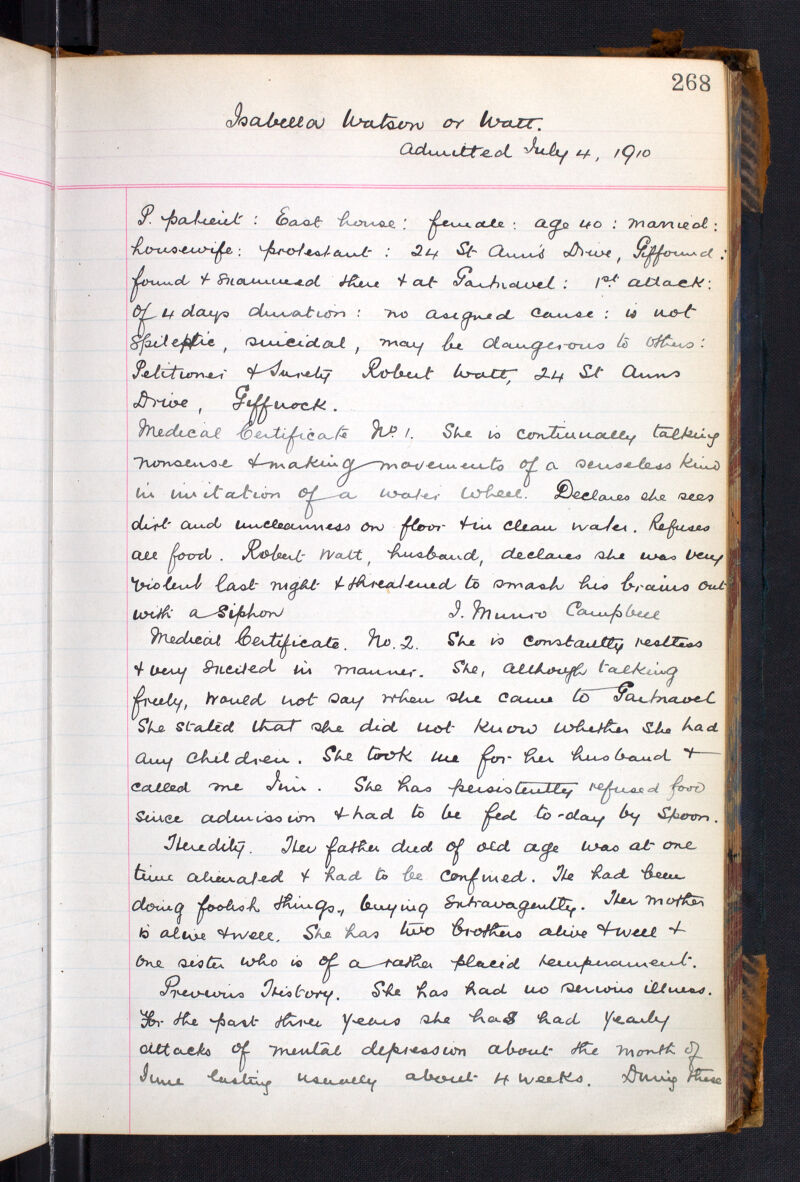 268
Isabella Watson or Watt.
Admitted July 4, 1910
P. patient : East house : female : age 40 : married :
housewife : protestant : 24 St Ann's Drive, Giffound :
found & examined there & at Gartnavel : 1st attack :
of 4 days duration : no asigned cause : is not
Epileptic, suicidal, may be dangerous to others :
Petitioner & Surety Robert Watt, 24 St Anns
Drive, Giffnock.
Medical Certificate No 1. She is continually talking
nonsense & making movements of a senseless kind
in imitation of a water wheel. Declares she sees
dirt and uncleanness on floor & in clean water. Refuses
all food. Robert Watt, husband, declares she was very
violent last night & threatened to smash his brains out
with a Siphon J. Munro Campbell
Medical Certificate. No. 2. She is constantly restless
& very excited in manner. She, although talking
freely, would not say when she came to Gartnavel
She stated that she did not know whether she had
any children. She took me for her husband &
called me Jim. She has persistently refused food
since admission & had to be fed to-day by Spoon.
Heredity. Her father died of old age was at one
time alienated & had to be confined. He had been
doing foolish things, buying extravagantly. Her mother
is alive & well. She has two brothers alive & well &
one sister who is of a rather placid temperament.
Previous History. She has had no serious illness.
For the past three years she has had yearly
attacks of mental depression about the month of
June lasting usually about 4 weeks. During these